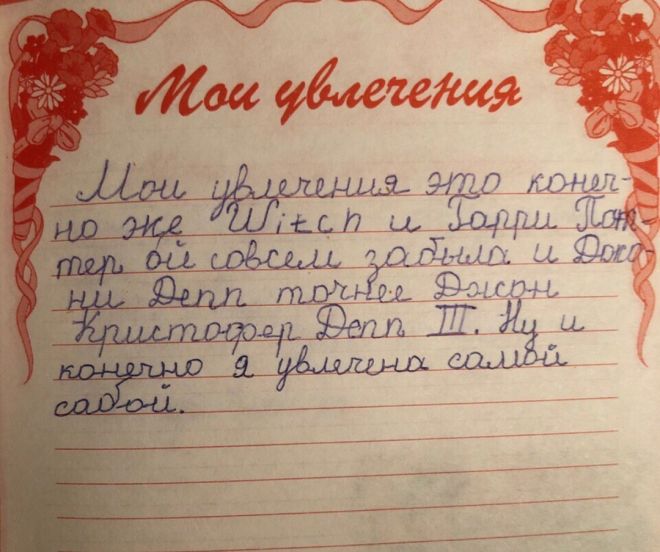 Мои увлечения
Мои увлечения это конеч-
но же Witch и Гарри Пот-
тер ой совсем забыла и Джо-
ни Депп точнее Джон
Кристофер Депп III. Ну и
конечно я увлечена самой
сабой.